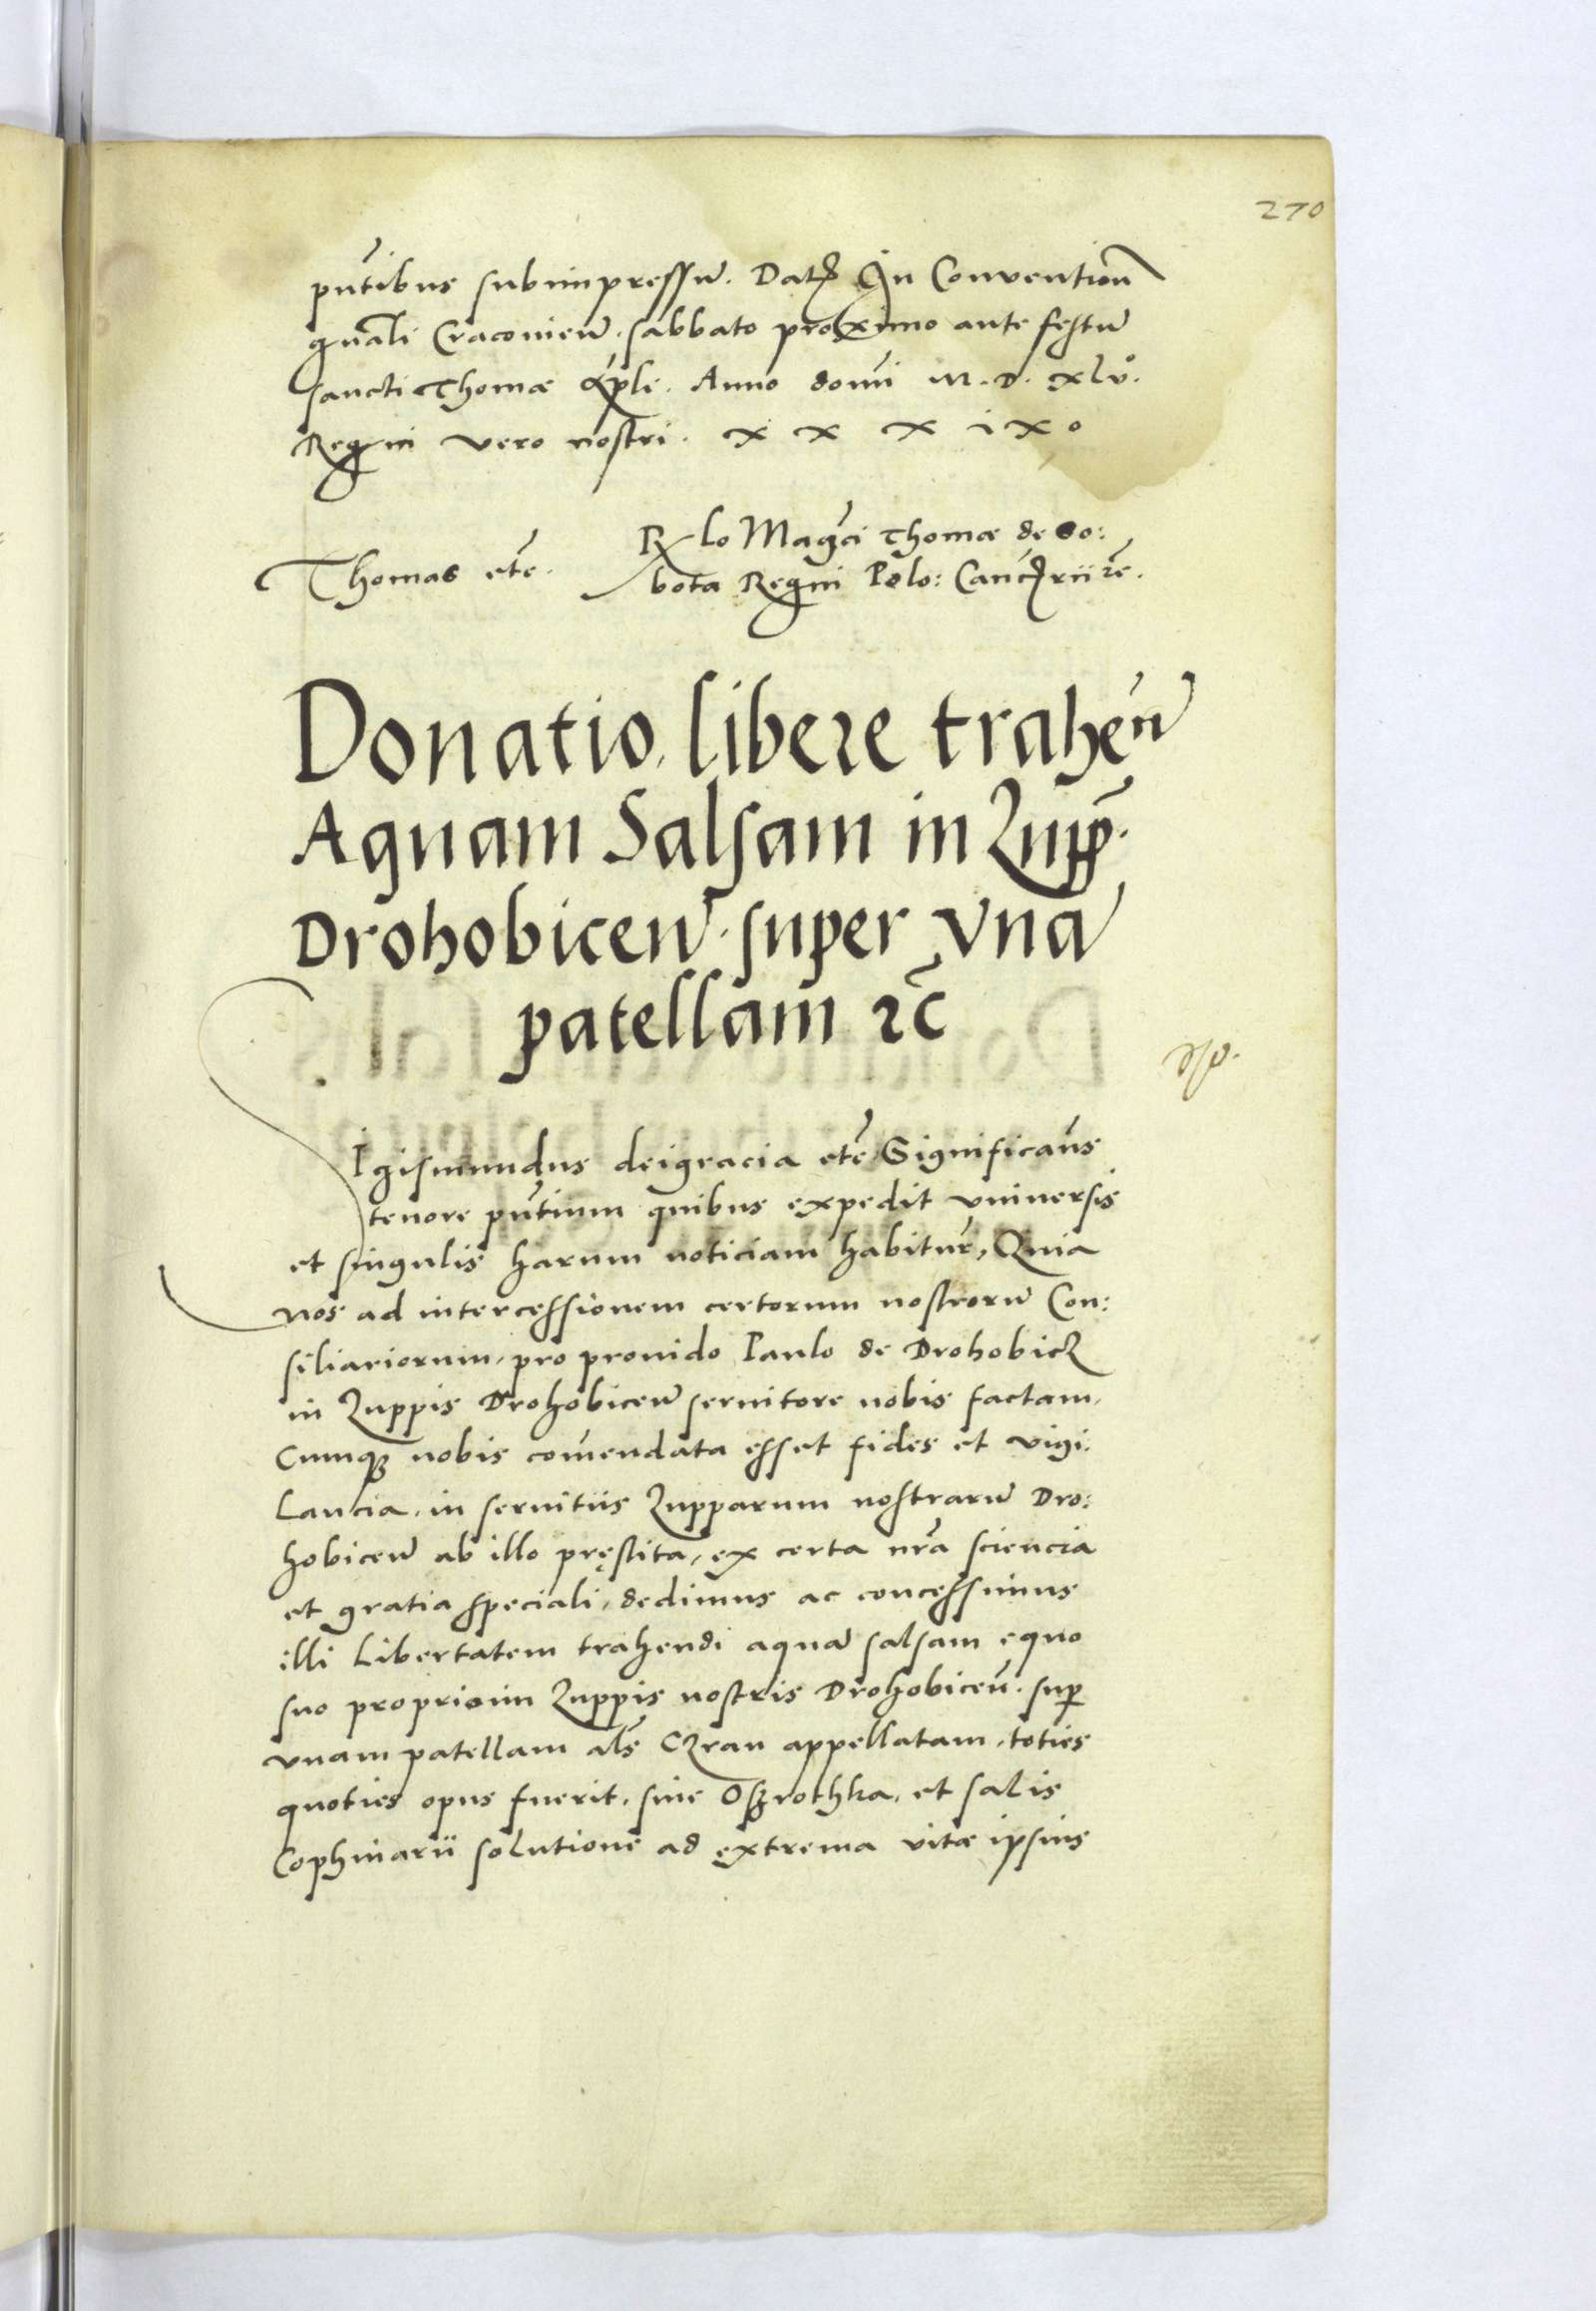 270
pñtibus subimpressũ. Datꝫ In Convention̄
gñali Cracovieñ. sabbato proximo ante festũ
sancti Thomæ Apl̃i. Anno domi M. D. xlvº.
Regni vero nostri. x x x i x o
Thomas etc̃.
Rx̃lo Magc̃i Thomæ de So:
bota Regni Polo: Canc̃ꝫrii ꝛc̃.
Donatio, libere traheñ
Aquam Salsam in Zupp̃.
Drohobiceñ. super vnã
patellam ꝛc̃
Igismundus dei gracia etc̃. Significam̃s
tenore pñtium quibus expedit vniversis
et singulis harum noticiam habitur̃, Quia
nos ad intercessionem certorum nostrorũ Con:
siliariorum, pro provido Paulo de Drohobicz
in Zuppis Drohobiceñ servitore nobis factam,
Cumqꝫ nobis com̃endata esset fides et vigi:
lancia, in servitiis Zupparum nostrarũ Dro:
hobiceñ ab illo pręstita, ex certa nr̃a sciencia
et gratia speciali, dedimus ac concessimus
illi libertatem trahendi aquã salsam equo
suo proprio in Zuppis nostris Drohobiceñ. sup̱
vnam patellam al̃s Czran appellatam, toties
quoties opus fuerit, sine Oszrothka, et salis
Cophinarii solutione ad extrema vitæ ipsius